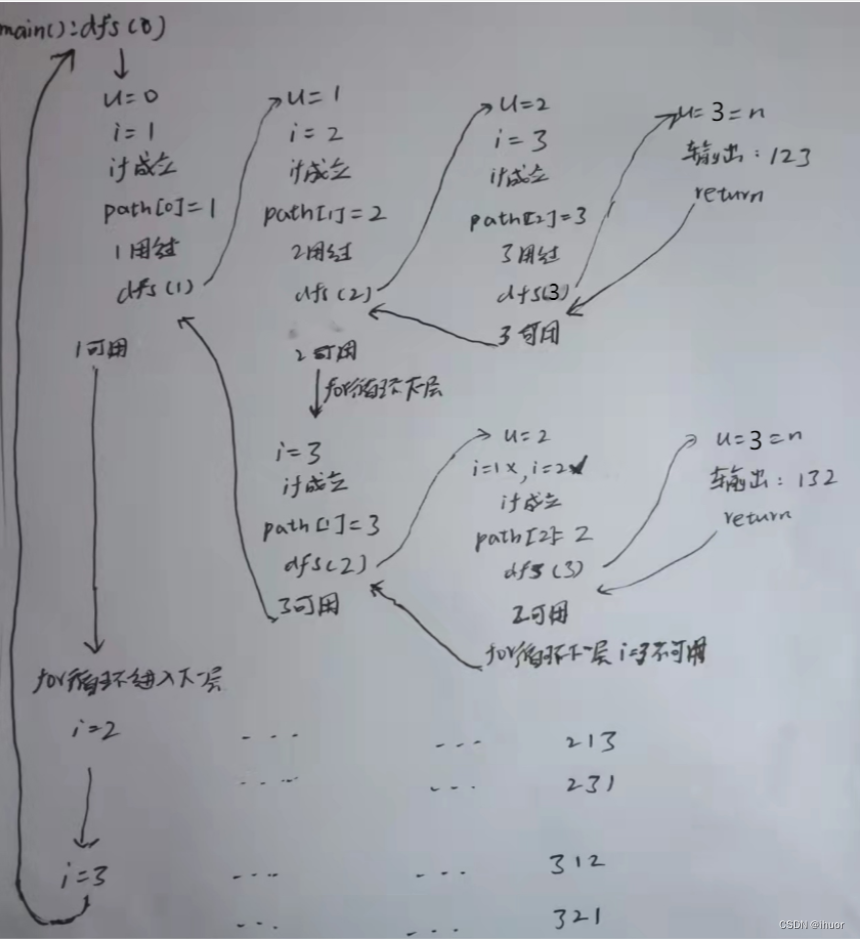 main():dfs(0)
u=0
i=1
if成立
path[0]=1
1用过
dfs(1)
1可用
for循环进入下一层
i=2
i=3
u=1
i=2
if成立
path[1]=2
2用过
dfs(2)
2可用
for循环下一层
i=3
if成立
path[1]=3
dfs(2)
3可用
u=2
i=3
if成立
path[2]=3
3用过
dfs(3)
3可用
u=3=n
输出:123
return
u=2
i=1×,i=2✓
if成立
path[2]=2
dfs(3)
2可用
for循环下一层 i=3不可用
u=3=n
输出:132
return
... ... 213
... ... 231
... ... 312
... ... 321
CSDN @lhuor